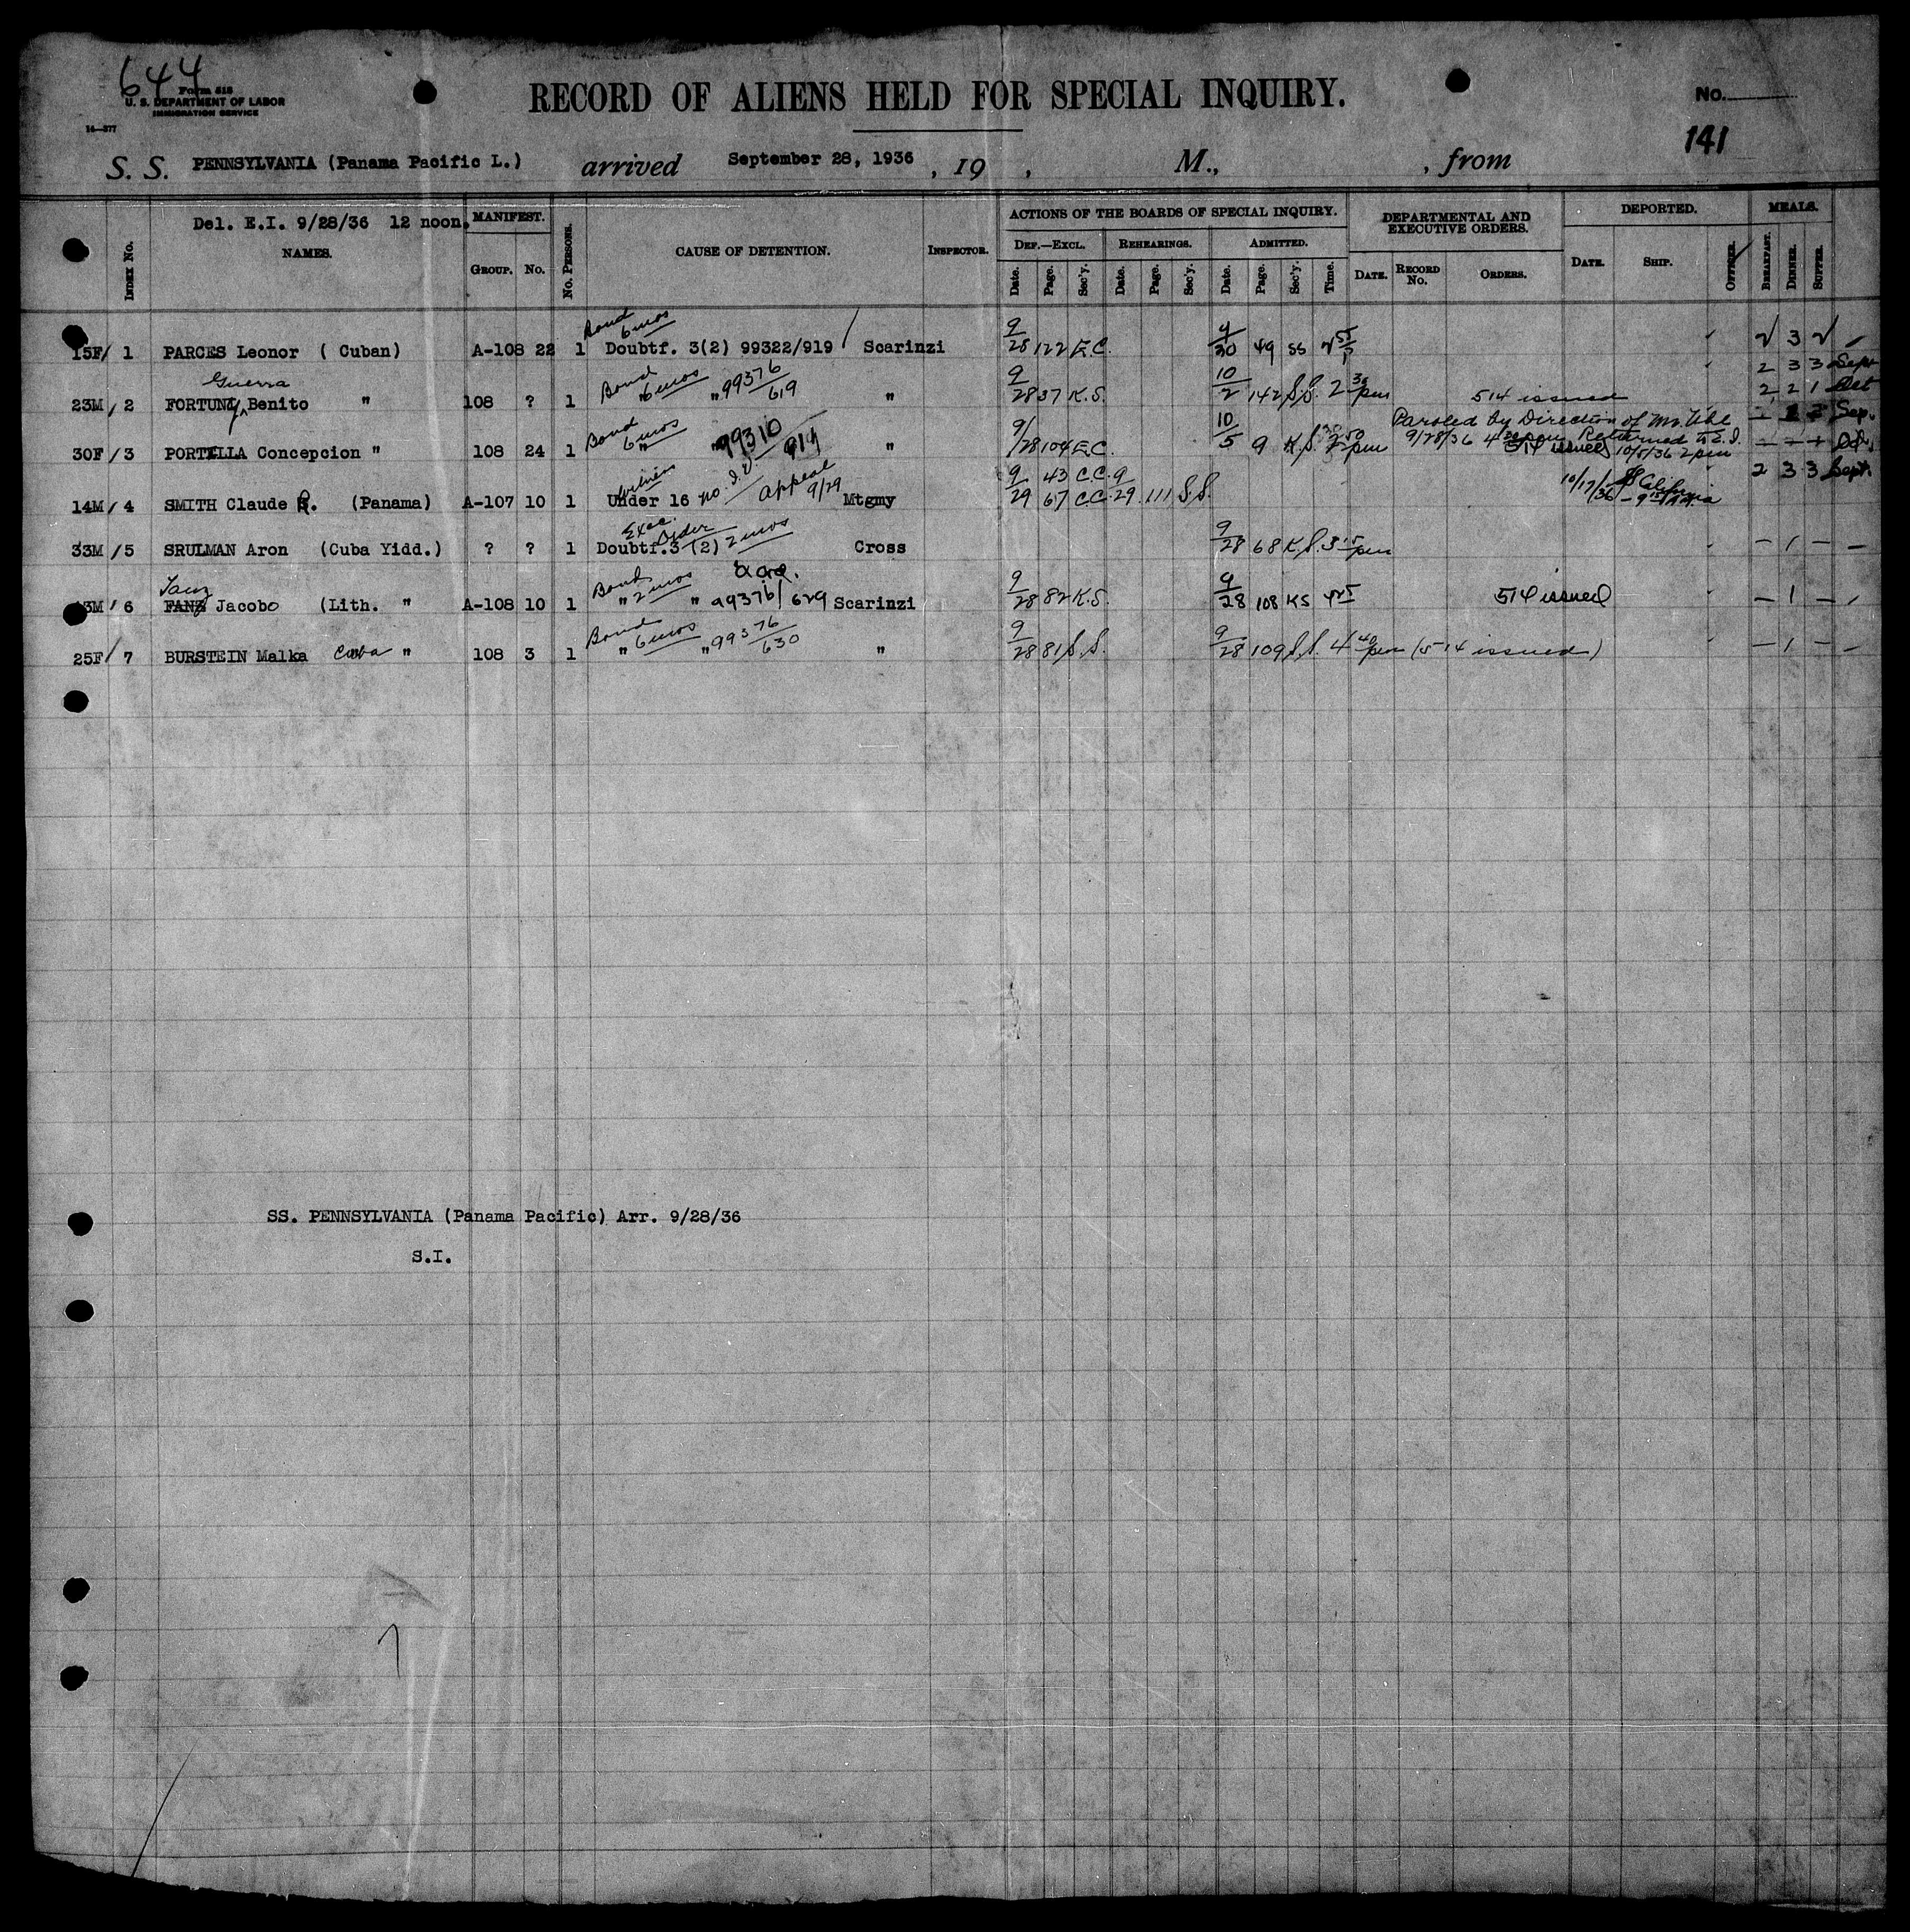 644
Form 518
U. S. DEPARTMENT OF LABOR
IMMIGRATION SERVICE
14—377
RECORD OF ALIENS HELD FOR SPECIAL INQUIRY.
No.
141
S. S. PENNSYLVANIA (Panama Pacific L.) arrived September 28, 1936, 19 , M., , from
Del. E.I. 9/28/36 12 noon.
MANIFEST. ACTIONS OF THE BOARDS OF SPECIAL INQUIRY. DEPARTMENTAL AND EXECUTIVE ORDERS. DEPORTED. MEALS.
Index No. NAMES. Group. No. No. Persons. CAUSE OF DETENTION. Inspector. Def.—Excl. Rehearings. Admitted.
Date. Page. Sec'y. Date. Page. Sec'y. Date. Page. Sec'y. Time. Date. Record No. Orders. Date. Ship. Officer. Breakfast. Dinner. Supper.
Bond 6 mos
15F/ 1 PARCES Leonor ( Cuban) A-108 22 1 Doubtf. 3(2) 99322/919 / Scarinzi 9/28 122 E.C. 9/30 49 SS 3
2 3 3 Sept
Guerra Bond
23M/ 2 FORTUNY Benito " 108 ? 1 " 6 mos " 99376/619 " 9/28 37 K.S. 10/2 142 S.S. 2 30 pm 514 issued 2 2 1 Oct
Paroled by Direction of Mr. Uhl
Bond 6 mos
30F/ 3 PORTILLA Concepcion " 108 24 1 " 99310/914 " 9/28 104 E.C. 10/5 9 K.S. pm 9/28/36 Returned to E.I. 10/5/36 2 pm
514 issued
14M/ 4 SMITH Claude R. (Panama) A-107 10 1 Under 16 no I.V. Appeal 9/29 Mtgmy 9/29 43 C.C. 67 C.C. 9/29 111 S.S. 10/17/36 SS California 2 3 3 Sept.
Exec. Order
33M/5 SRULMAN Aron (Cuba Yidd.) ? ? 1 Doubtf.3 (2) 2 mos Cross 9/28 68 K.S. 3 15 pm — 1 — —
Tanz Bond
/ 6 FANZ Jacobo (Lith. " A-108 10 1 " 2 mos " 99376/629 Scarinzi 9/28 82 K.S. 9/28 108 KS 4 25 514 issued — 1 —
Bond
25F/ 7 BURSTEIN Malka Cuba " 108 3 1 " 6 mos " 99376/630 " 9/28 81 S.S. 9/28 109 S.S. 4 40 pm (514 issued) — 1 — —
SS. PENNSYLVANIA (Panama Pacific) Arr. 9/28/36
S.I.
7